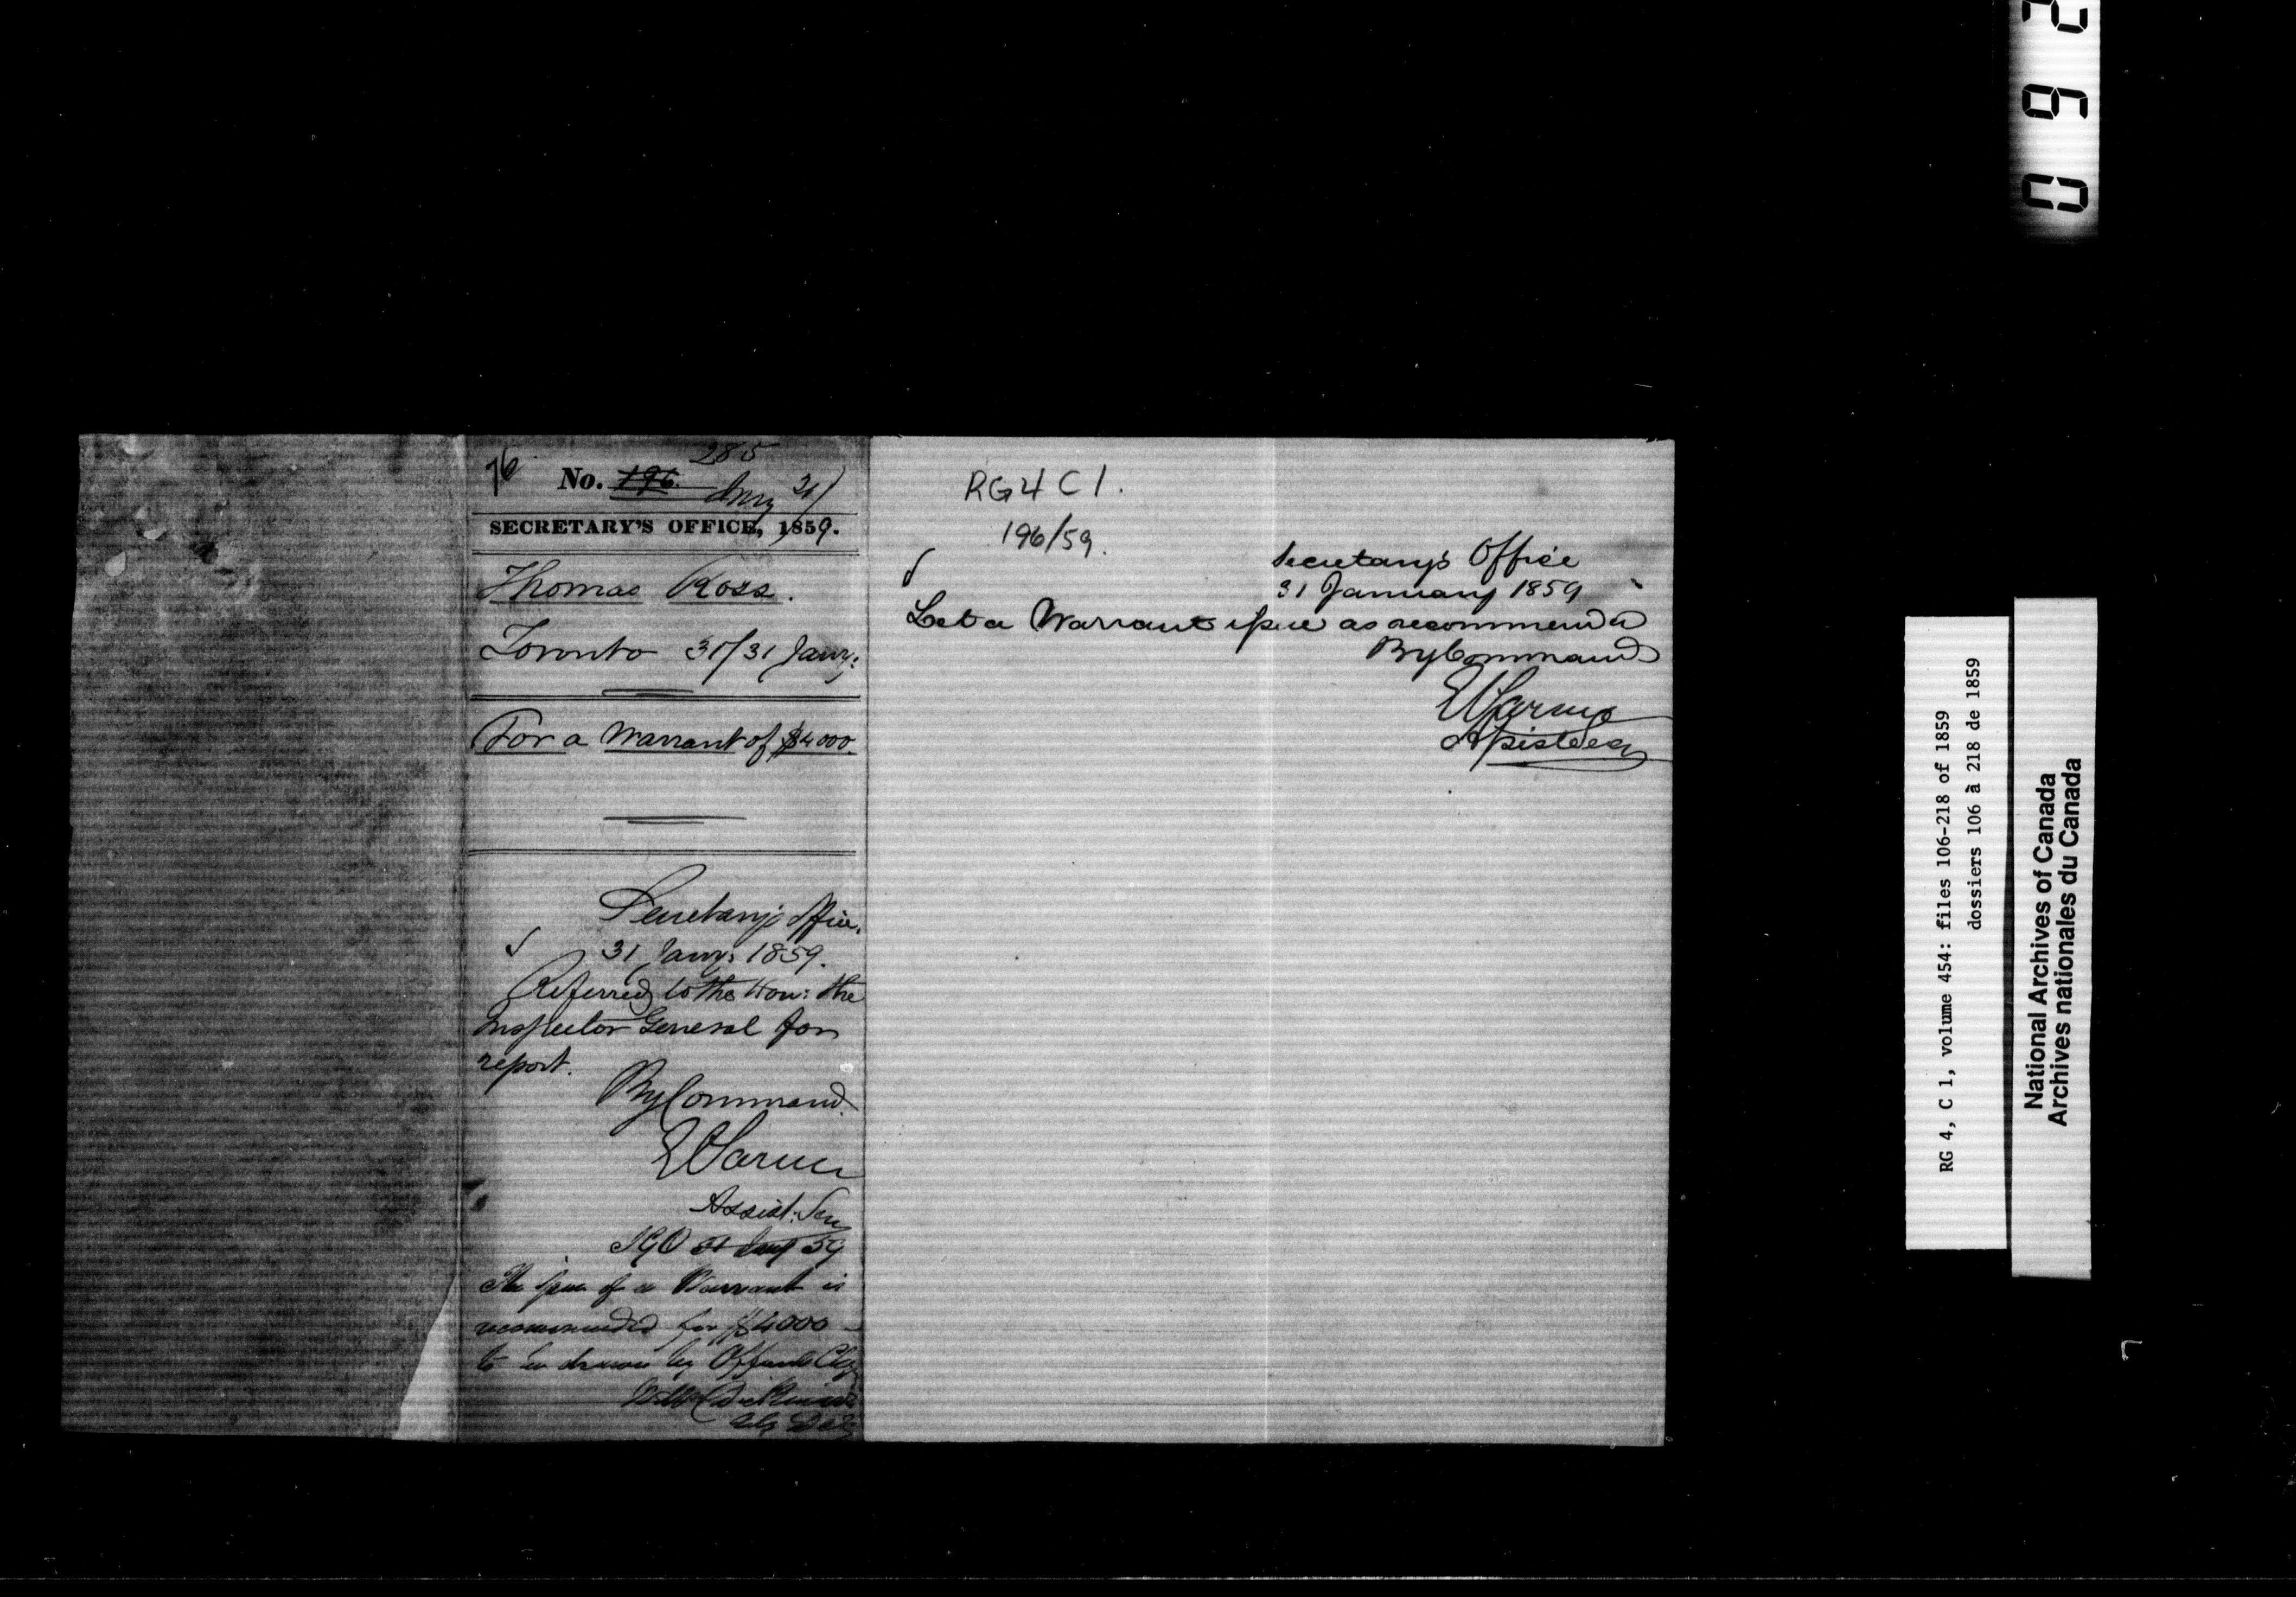 76
285
No. 196.
Jany 31/
SECRETARY'S OFFICE, 1859.
Thomas Ross.
Toronto 31/31 Jany:
For a Warrant of $4000.
Secretary's Office.
31 Jany: 1859.
Referred to the Hon: the
Inspector General for
report.
By Command.
Assist: Secy
IGO 31 Jany 59
The issue of a Warrant is
recommended for $4000
to be drawn by
RG4 C1.
196/59.
Secretary's Office
31 January 1859
Let a Warrant issue as recommended
By Command
Assist Secy
RG 4, C 1, volume 454: files 106-218 of 1859
dossiers 106 à 218 de 1859
National Archives of Canada
Archives nationales du Canada